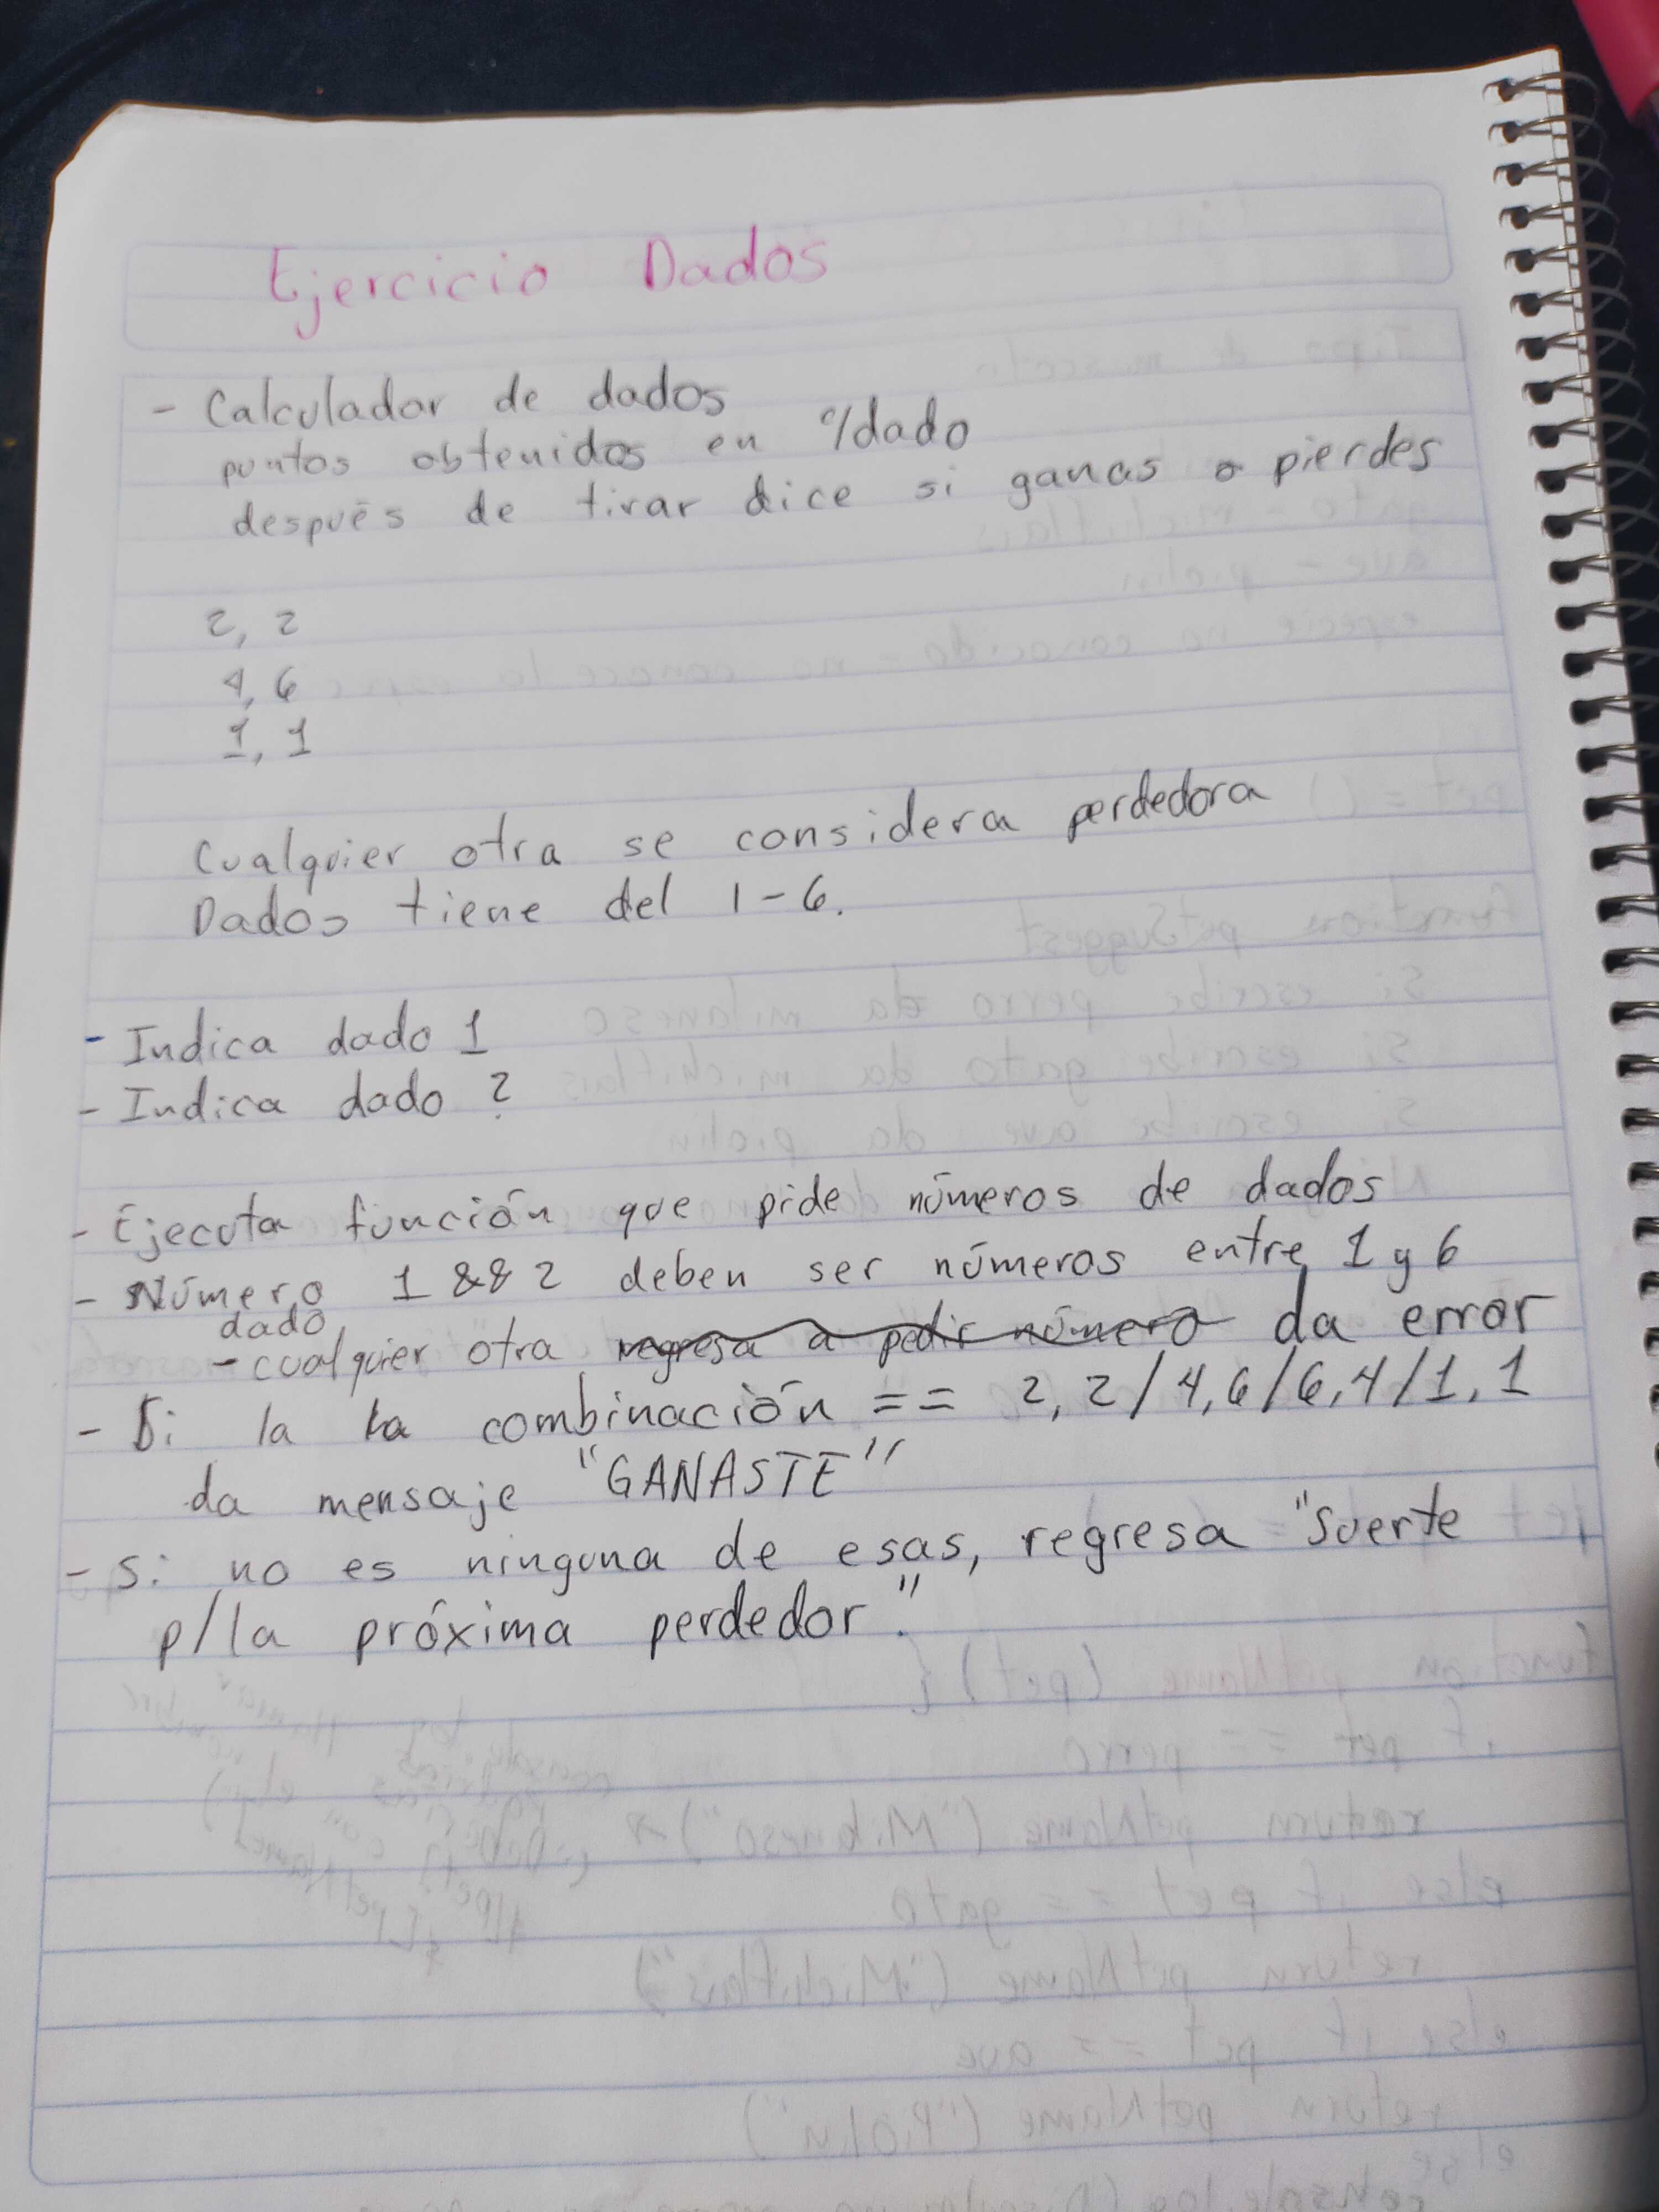 Ejercicio Dados
- Calculador de dados
puntos obtenidos en c/dado
después de tirar dice si ganas o pierdes
2, 2
4, 6
1, 1
Cualquier otra se considera perdedora
Dados tiene del 1-6.
- Indica dado 1
- Indica dado 2
- Ejecuta función que pide números de dados
- Número dado 1 && 2 deben ser números entre 1 y 6
- cualquier otra regresa a pedir número da error
- Si la la combinación == 2, 2/4,6/6,4/1, 1
da mensaje "GANASTE"
- Si no es ninguna de esas, regresa "Suerte
p/la próxima perdedor".